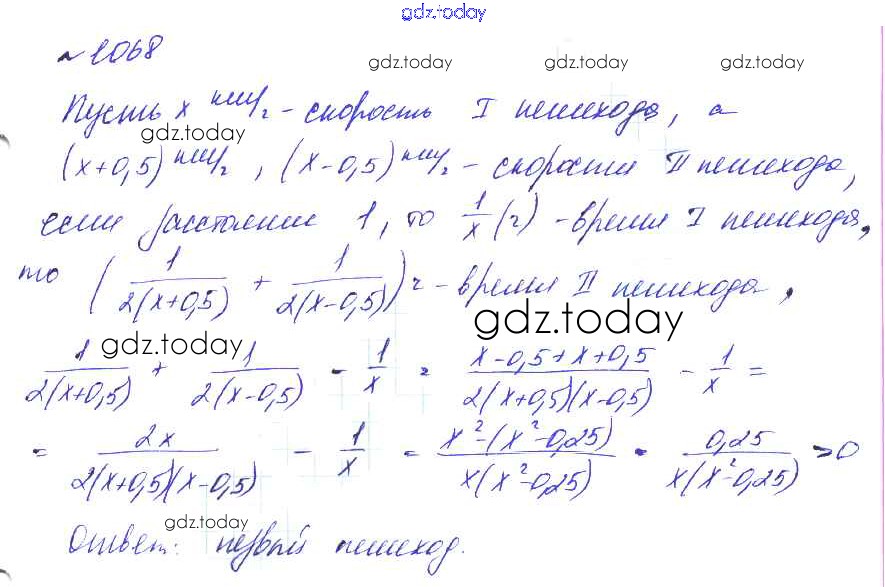 gdz.today
№ 1068
gdz.today gdz.today
Пусть x км/г - скорость I пешехода, а
gdz.today
(x+0,5) км/г, (x-0,5) км/г - скорости II пешехода,
если расстояние 1, то 1/x (г) - время I пешехода,
то (1/2(x+0,5) + 1/2(x-0,5)) г - время II пешехода,
gdz.today
gdz.today
1/2(x+0,5) + 1/2(x-0,5) - 1/x = x-0,5+x+0,5/2(x+0,5)(x-0,5) - 1/x =
= 2x/2(x+0,5)(x-0,5) - 1/x = x²-(x²-0,25)/x(x²-0,25) = 0,25/x(x²-0,25) >0
gdz.today
Ответ: первый пешеход.
gdz.today